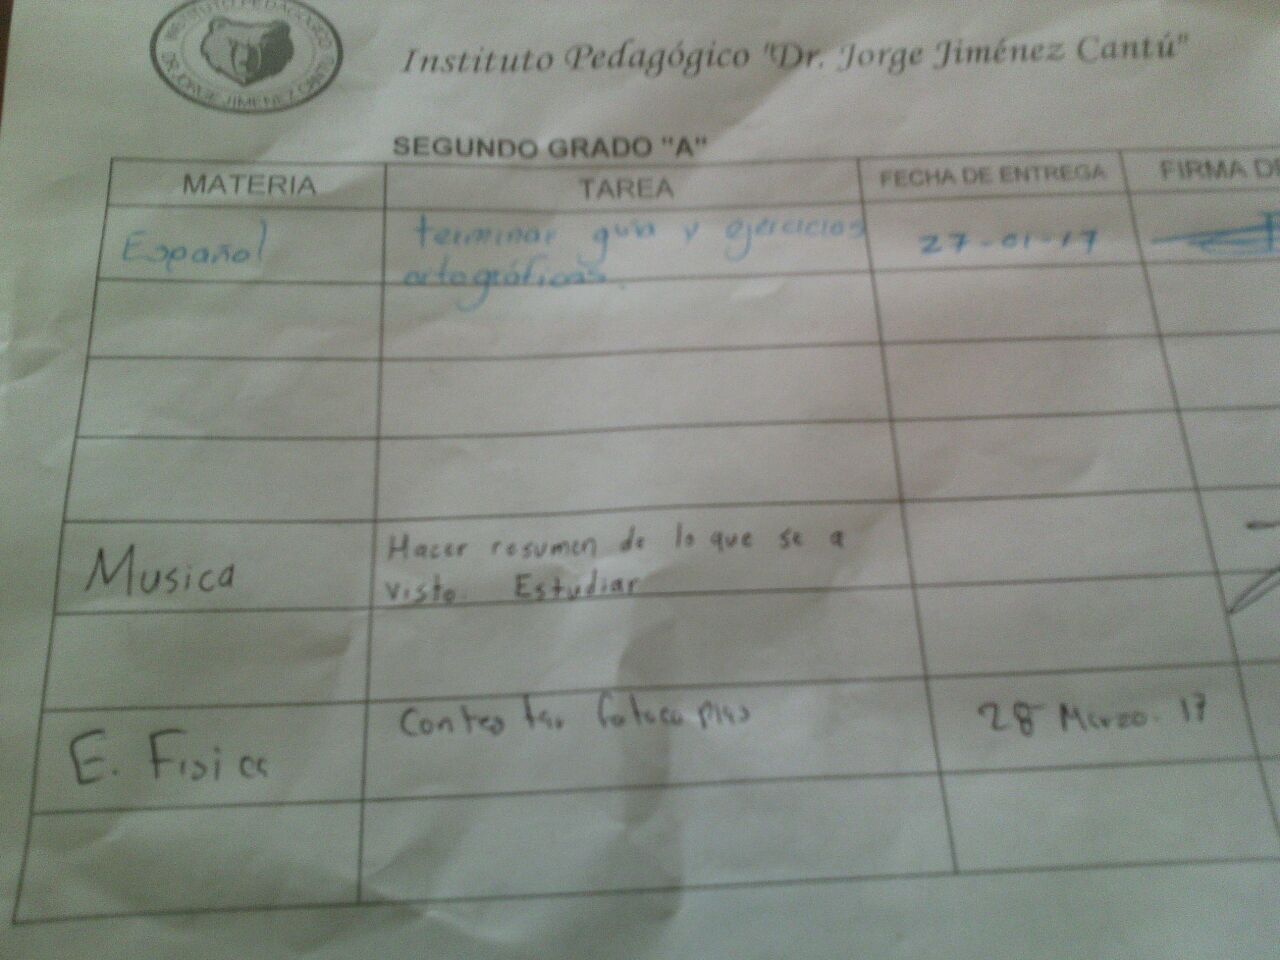 INSTITUTO PEDAGOGICO
DR. JORGE JIMENEZ CANTU
Instituto Pedagógico "Dr. Jorge Jiménez Cantú"
SEGUNDO GRADO "A"
MATERIA TAREA FECHA DE ENTREGA FIRMA DE
Español terminar guia y ejercicios 27-01-17
ortográficos.
Musica Hacer resumen de lo que se a
visto. Estudiar
E. Fisica Contestar fotocopias 28 Marzo. 17